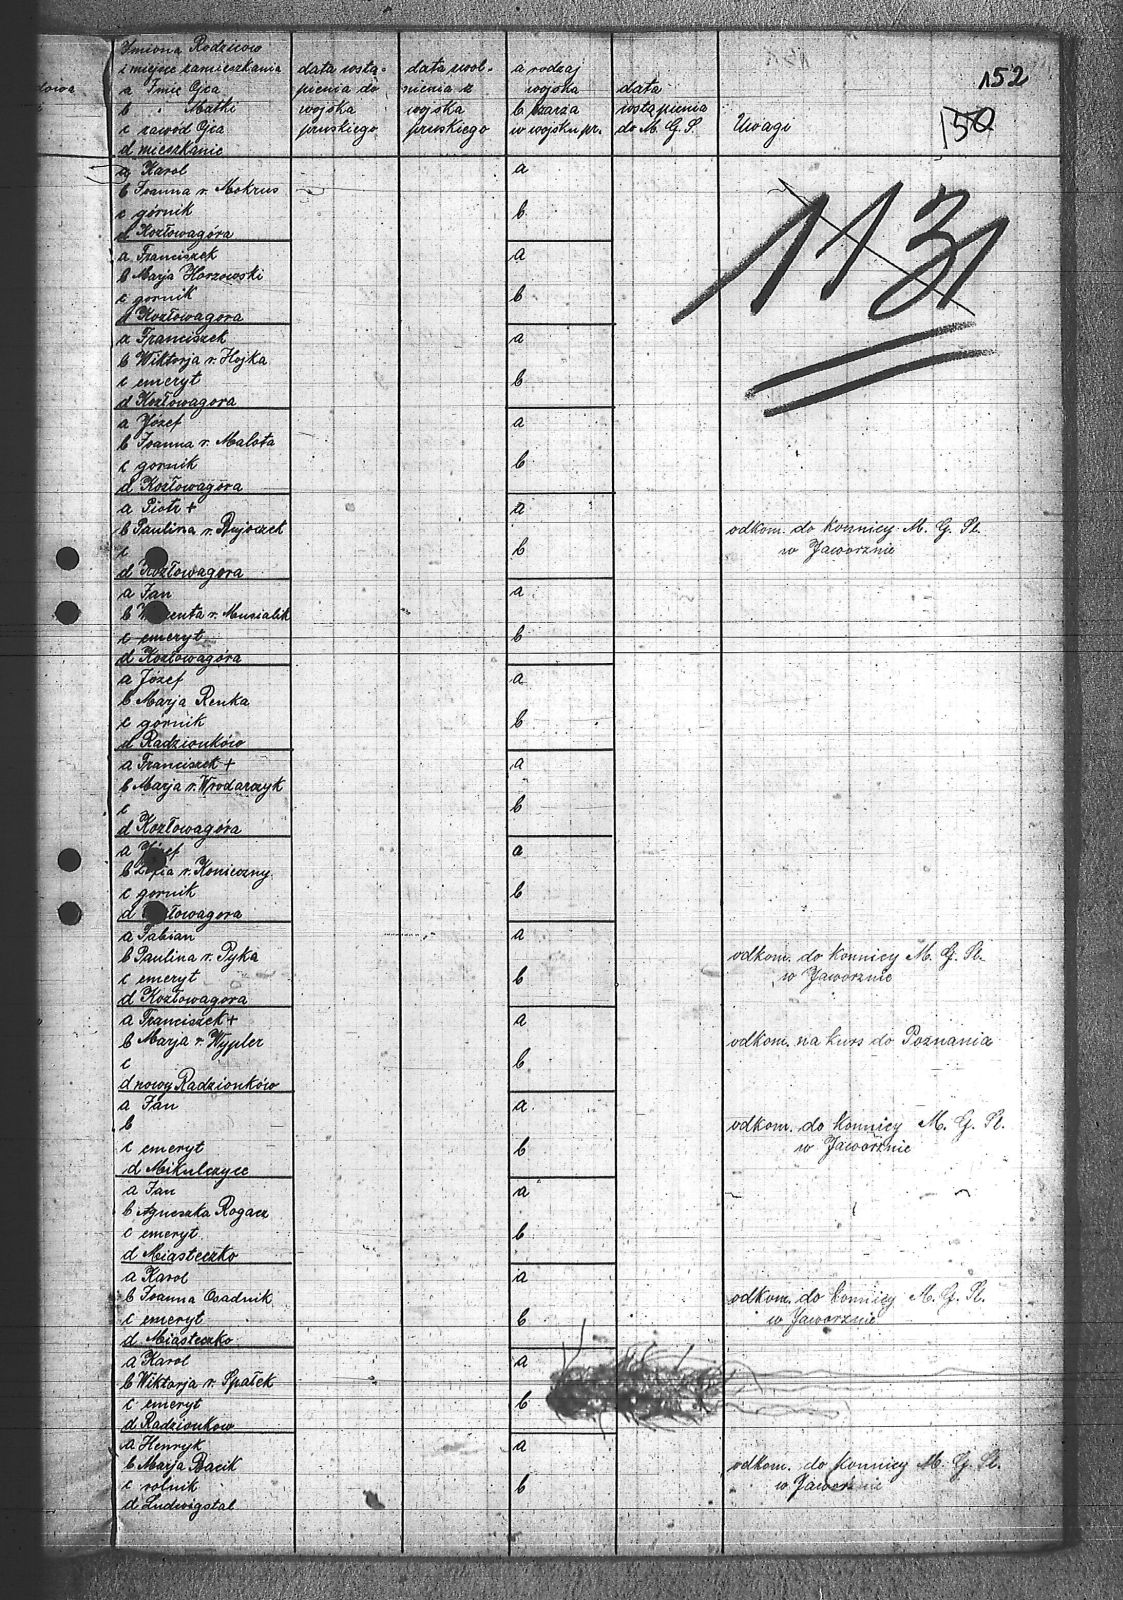 152
150
1131
dowa
Imiona Rodziców
i miejsce zamieszkania
a Imię Ojca
b " Matki
c zawód Ojca
d mieszkanie
data wstą-
pienia do
wojska
pruskiego
data zwol-
nienia z
wojska
pruskiego
a rodzaj
wojska
b szarża
w wojsku pr.
data
wstąpienia
do M. G. S.
Uwagi
a Karol a
b Joanna r. Mokrus
c górnik b
d Kozłowagóra
a Franciszek a
b Marja Horzowski
c gornik b
d Kozłowagora
a Franciszek a
b Wiktorja r. Hojka
c emeryt b
d Kozłowagora
a Józef a
b Joanna r. Malota
c gornik b
d Kozłowagóra
a Piotr + a
b Paulina r. odkom. do konnicy M. G. Śl.
c b w Jaworznie
d Kozłowagora
a Jan a
b r. Musialik
c emeryt b
d Kozłowagóra
a Józef a
b Marja Renka
c górnik b
d Radzionków
a Franciszek + a
b Marja r. Wrodarczyk
c b
d Kozłowagóra
a a
b r. Konieczny
c gornik b
d
a Fabian a
b Paulina r. Pyka odkom. do konnicy M. G. Śl.
c emeryt b w Jaworznie
d Kozłowagora
a Franciszek + a
b Marja r. Wypler odkom. na kurs do Poznania
c b
d nowy Radzionków
a Jan a
b odkom. do konnicy M. G. Śl.
c emeryt b w Jaworznie
d Mikulczyce
a Jan a
b Agneszka Rogacz
c emeryt b
d Miasteczko
a Karol a
b Joanna Osadnik odkom. do konnicy M. G. Śl.
c emeryt b w Jaworznie
d Miasteczko
a Karol a
b Wiktorja r. Spałek
c emeryt b
d Radzionkow
a Henryk a
b Marja Bacik odkom. do konnicy M. G. Śl.
c rolnik b w Jaworznie
d Ludwigstal